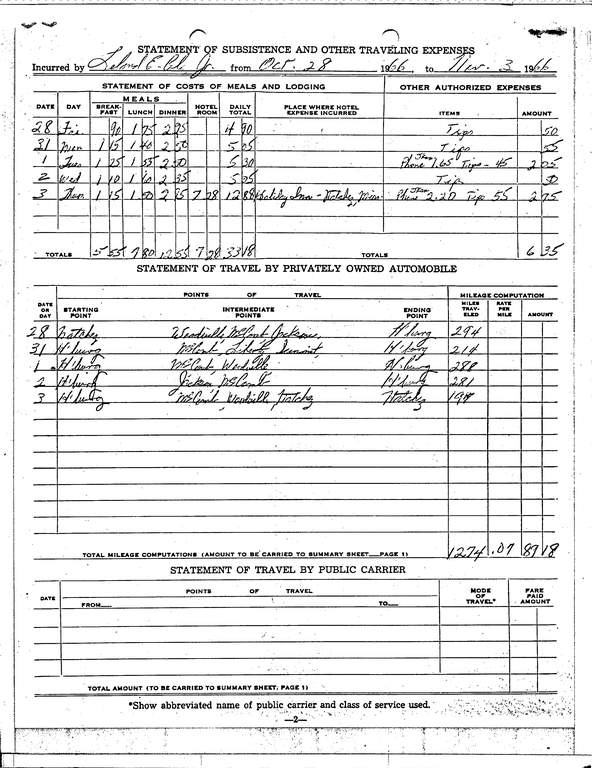 STATEMENT OF SUBSISTENCE AND OTHER TRAVELING EXPENSES
Incurred by E. Jr. from Oct. 28 1966, to Nov. 3 1966
STATEMENT OF COSTS OF MEALS AND LODGING OTHER AUTHORIZED EXPENSES
MEALS
DATE DAY BREAK-FAST LUNCH DINNER HOTEL ROOM DAILY TOTAL PLACE WHERE HOTEL EXPENSE INCURRED ITEMS AMOUNT
28 Fri 90 1 75 2 25 4 90 Tips 50
31 Mon 1 15 1 40 2 50 5 05 Tips 55
1 Tues 1 25 1 55 2 50 5 30 Phone 1.65 Tips - 45 2 05
2 Wed 1 10 1 60 2 35 5 05 Tip 50
3 Thur 1 15 1 50 2 95 7 28 12 88 Inn - Natchez, Miss. Phone 2.20 Tips 55 2 75
TOTALS 5 55 7 80 12 55 7 28 33 18 TOTALS 6 35
STATEMENT OF TRAVEL BY PRIVATELY OWNED AUTOMOBILE
POINTS OF TRAVEL MILEAGE COMPUTATION
DATE OR DAY STARTING POINT INTERMEDIATE POINTS ENDING POINT MILES TRAV-ELED RATE PER MILE AMOUNT
28 Natchez Woodville, McComb, Jackson, H'burg 294
31 H'burg McComb, Liberty, H'burg 214
1 H'burg McComb, Woodville H'burg 288
2 H'burg Jackson McComb H'burg 281
3 H'burg McComb, Woodville, Natchez Natchez 197
TOTAL MILEAGE COMPUTATIONS (AMOUNT TO BE CARRIED TO SUMMARY SHEET—PAGE 1) 1274 .07 89 18
STATEMENT OF TRAVEL BY PUBLIC CARRIER
DATE POINTS OF TRAVEL MODE OF TRAVEL* FARE PAID AMOUNT
FROM— TO—
TOTAL AMOUNT (TO BE CARRIED TO SUMMARY SHEET: PAGE 1)
*Show abbreviated name of public carrier and class of service used.
—2—